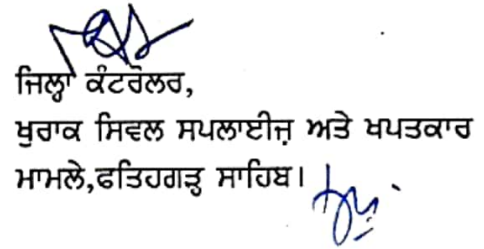 ਜਿਲ੍ਹਾ ਕੰਟਰੋਲਰ,
ਖੁਰਾਕ ਸਿਵਲ ਸਪਲਾਈਜ਼ ਅਤੇ ਖਪਤਕਾਰ
ਮਾਮਲੇ,ਫਤਿਹਗੜ੍ਹ ਸਾਹਿਬ।